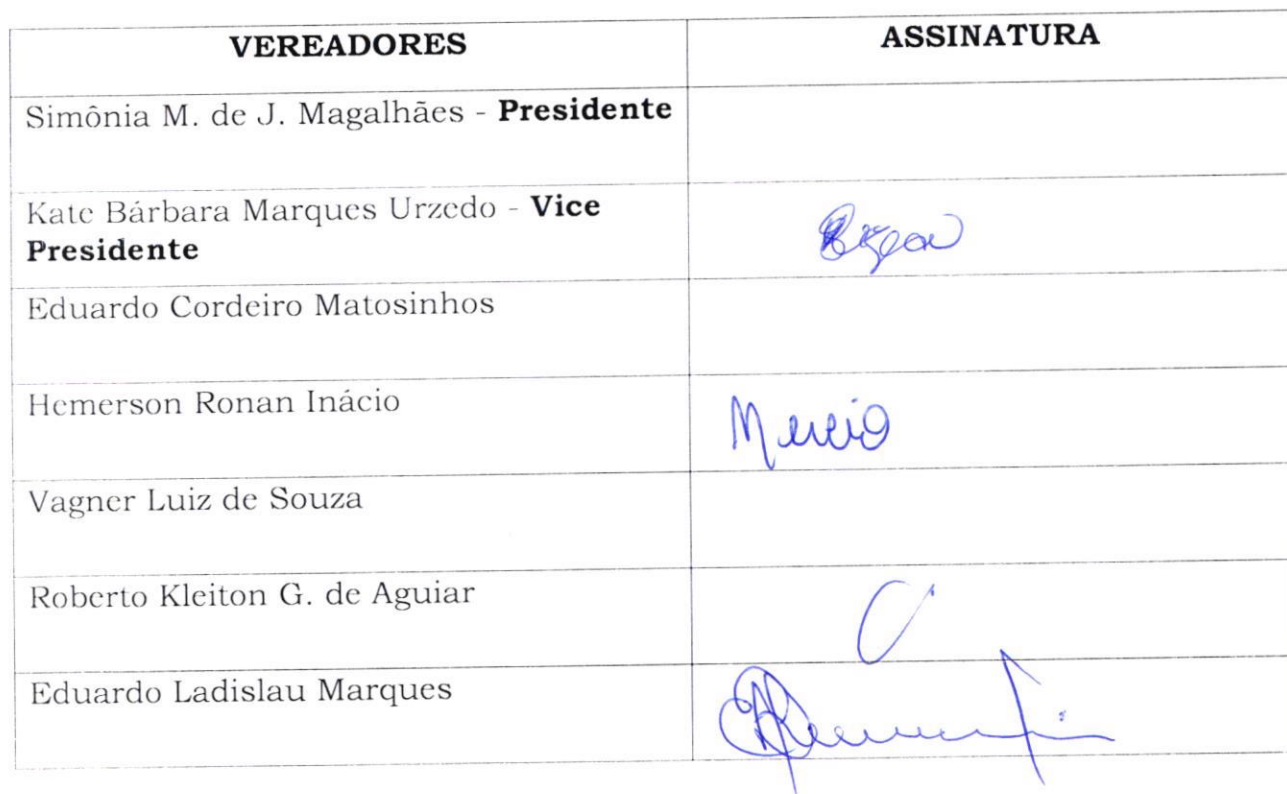 VEREADORES ASSINATURA
Simônia M. de J. Magalhães - Presidente
Kate Bárbara Marques Urzedo - Vice
Presidente
Eduardo Cordeiro Matosinhos
Hemerson Ronan Inácio
Vagner Luiz de Souza
Roberto Kleiton G. de Aguiar
Eduardo Ladislau Marques